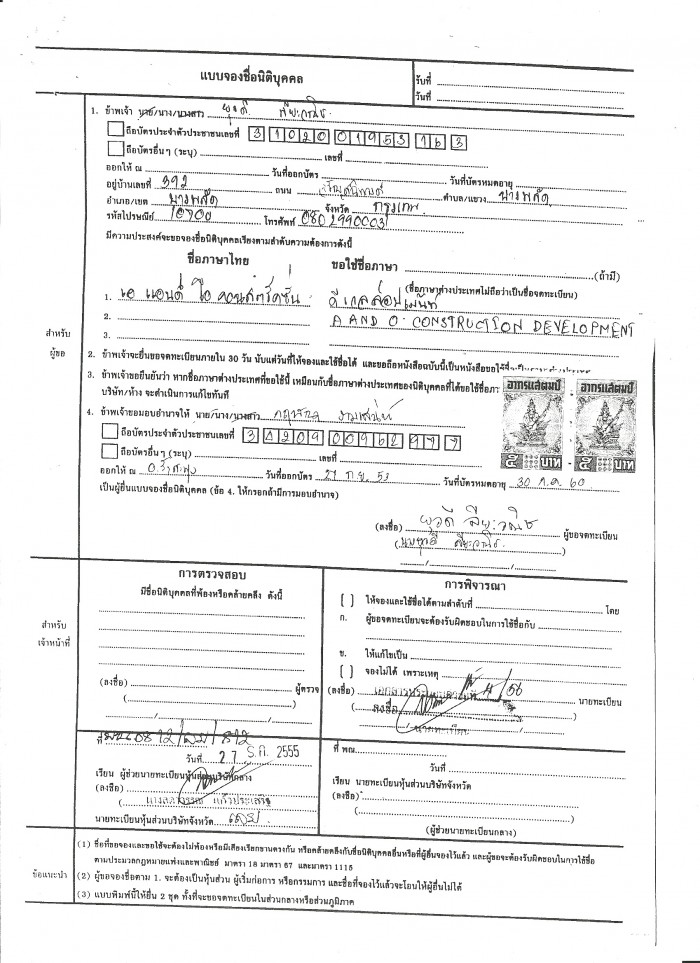 แบบจองชื่อนิติบุคคล
รับที่
วันที่
1. ข้าพเจ้า นาย/นาง/นางสาว
ถือบัตรประจำตัวประชาชนเลขที่ 3 1 0 2 0 0 1 9 5 3 1 6 3
ถือบัตรอื่นๆ (ระบุ) เลขที่
ออกให้ ณ วันที่ออกบัตร วันที่บัตรหมดอายุ
อยู่บ้านเลขที่ 392 ถนน จรัญสนิทวงศ์ ตำบล/แขวง บางพลัด
อำเภอ/เขต บางพลัด จังหวัด กรุงเทพ
รหัสไปรษณีย์ 10700 โทรศัพท์ 0802990003
มีความประสงค์จะขอจองชื่อนิติบุคคลเรียงตามลำดับความต้องการดังนี้
ชื่อภาษาไทย ขอใช้ชื่อภาษา (ถ้ามี)
(ชื่อภาษาต่างประเทศไม่ถือว่าเป็นชื่อจดทะเบียน)
1. เอ แอนด์ โอ คอนสตรัคชั่น ดีเวลลอปเม้นท์
2. A AND O CONSTRUCTION DEVELOPMENT
3.
สำหรับ
ผู้ขอ
2. ข้าพเจ้าจะยื่นขอจดทะเบียนภายใน 30 วัน นับแต่วันที่ให้จองและใช้ชื่อได้ และขอถือหนังสือฉบับนี้เป็นหนังสือขอใช้ชื่อ
3. ข้าพเจ้าขอยืนยันว่า หากชื่อภาษาต่างประเทศที่ขอใช้นี้ เหมือนกับชื่อภาษาต่างประเทศของนิติบุคคลที่ได้ขอใช้ชื่อ
บริษัท/ห้าง จะดำเนินการแก้ไขทันที
อากรแสตมป์ อากรแสตมป์
๕ บาท ๕ บาท
4. ข้าพเจ้าขอมอบอำนาจให้ นาย/นาง/นางสาว
ถือบัตรประจำตัวประชาชนเลขที่ 3 4 2 0 9 0 0 9 6 2 9 7 7
ถือบัตรอื่นๆ (ระบุ) เลขที่
ออกให้ ณ วันที่ออกบัตร 21 ก.ย. 53 วันที่บัตรหมดอายุ 30 ก.ค. 60
เป็นผู้ยื่นแบบจองชื่อนิติบุคคล (ข้อ 4. ให้กรอกถ้ามีการมอบอำนาจ)
(ลงชื่อ) ผู้ขอจดทะเบียน
การตรวจสอบ
มีชื่อนิติบุคคลที่พ้องหรือคล้ายคลึง ดังนี้
สำหรับ
เจ้าหน้าที่
(ลงชื่อ) ผู้ตรวจ
การพิจารณา
[ ] ให้จองและใช้ชื่อได้ตามลำดับที่ โดย
ก. ผู้ขอจดทะเบียนจะต้องรับผิดชอบในการใช้ชื่อกับ
ข. ให้แก้ไขเป็น
[ ] จองไม่ได้ เพราะเหตุ
(ลงชื่อ) นายทะเบียน
ลงชื่อ
นายทะเบียน
ที่
วันที่ 27 ธ.ค. 2555
เรียน ผู้ช่วยนายทะเบียนหุ้นส่วนบริษัทกลาง
(ลงชื่อ)
นายทะเบียนหุ้นส่วนบริษัทจังหวัด เลย
ที่ พณ.
วันที่
เรียน นายทะเบียนหุ้นส่วนบริษัทจังหวัด
(ลงชื่อ)
(ผู้ช่วยนายทะเบียนกลาง)
ข้อแนะนำ
(1) ชื่อที่ขอจองและขอใช้จะต้องไม่พ้องหรือมีเสียงเรียกขานตรงกัน หรือคล้ายคลึงกับชื่อนิติบุคคลอื่นหรือที่ผู้อื่นจองไว้แล้ว และผู้ขอจะต้องรับผิดชอบในการใช้ชื่อ
ตามประมวลกฎหมายแพ่งและพาณิชย์ มาตรา 18 มาตรา 67 และมาตรา 1115
(2) ผู้ขอจองชื่อตาม 1. จะต้องเป็นหุ้นส่วน ผู้เริ่มก่อการ หรือกรรมการ และชื่อที่จองไว้แล้วจะโอนให้ผู้อื่นไม่ได้
(3) แบบพิมพ์นี้ให้ยื่น 2 ชุด ทั้งที่จะขอจดทะเบียนในส่วนกลางหรือส่วนภูมิภาค